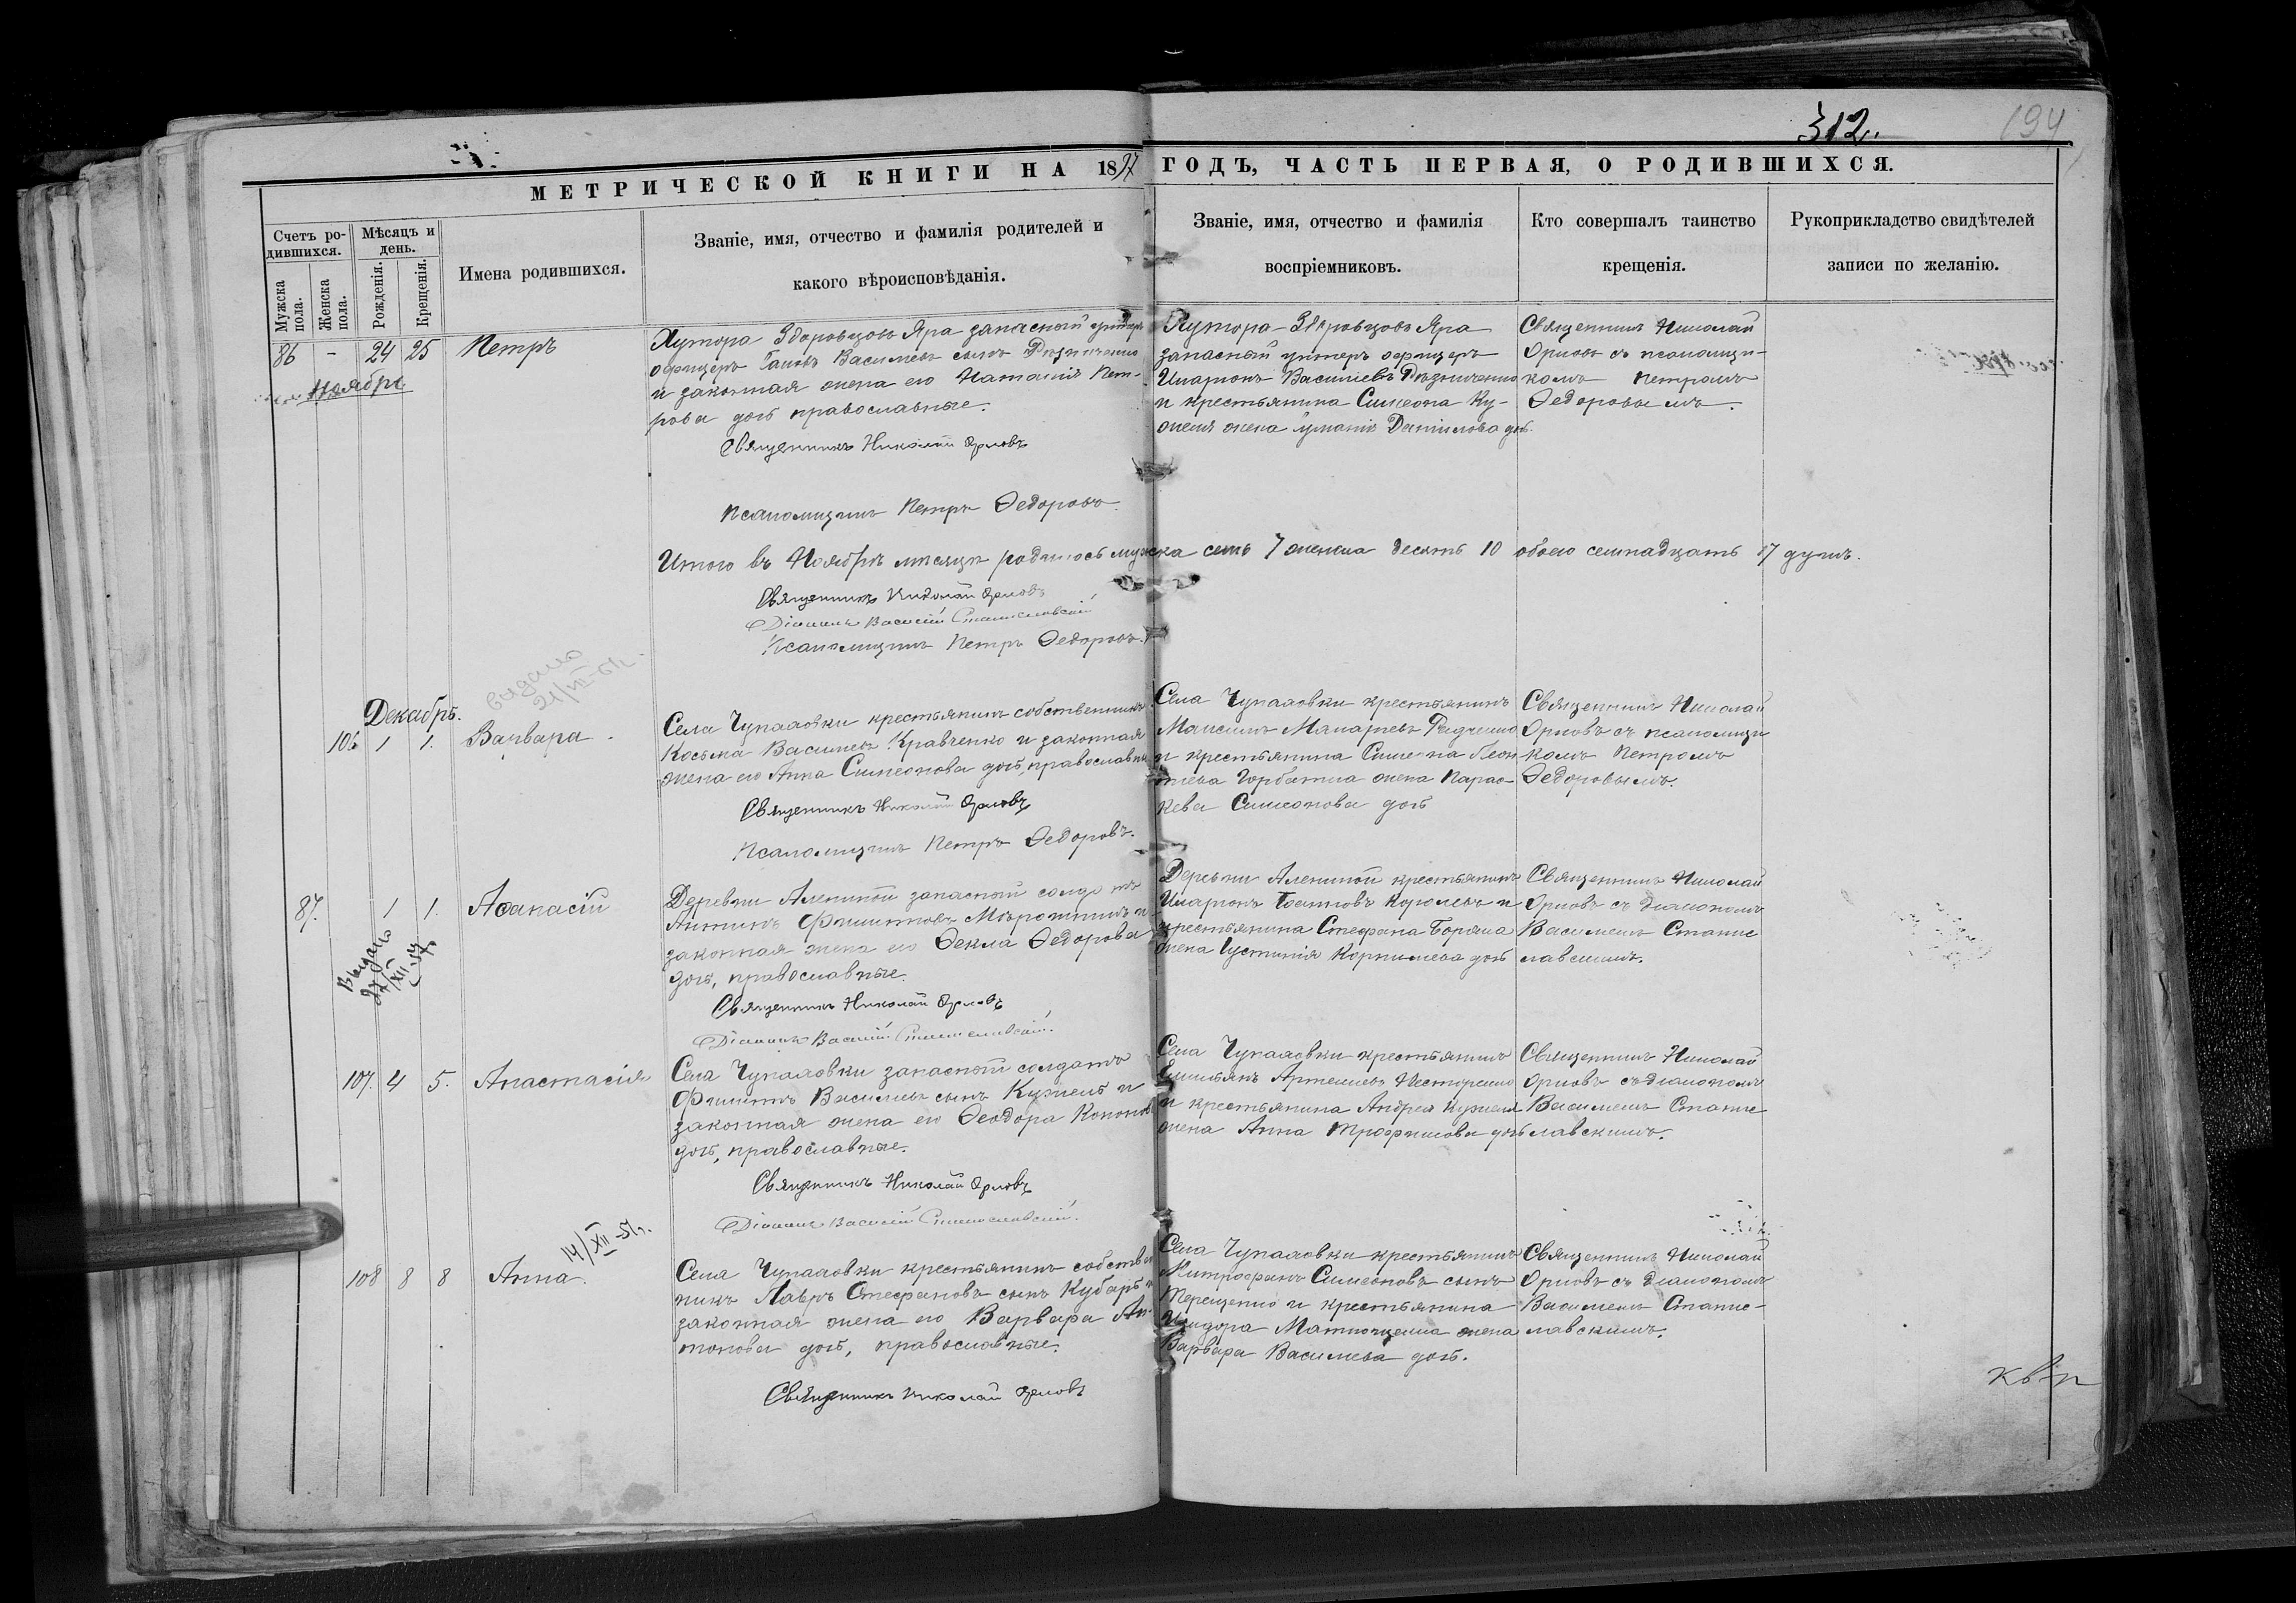 312.
194
МЕТРИЧЕСКОЙ КНИГИ НА 1897 ГОДЪ, ЧАСТЬ ПЕРВАЯ, О РОДИВШИХСЯ.
Счетъ ро-
дившихся.
Мужска пола.
Женска пола.
Мѣсяцъ и день.
Рожденія.
Крещенія.
Имена родившихся.
Званіе, имя, отчество и фамилія родителей и
какого вѣроисповѣданія.
Званіе, имя, отчество и фамилія
воспріемниковъ.
Кто совершалъ таинство
крещенія.
Рукоприкладство свидѣтелей
записи по желанію.
86 - 24 25 Петръ
Ноябрь
Хутора Здоровцовъ Яра запасный унтеръ
офицеръ Василіевъ сынъ
и законная жена его Наталія Пет-
рова дочь православные.
Священникъ Николай Орловъ
Псаломщикъ Петръ Ѳедоровъ.
Хутора Здоровцовъ Яра
запасный унтеръ офицеръ
Иларіонъ Василіевъ
и крестьянина Симеона Ку-
желя жена Даніилова дочь.
Священникъ Николай
Орловъ съ псаломщи-
комъ Петромъ
Ѳедоровымъ.
Итого въ Ноябрѣ мѣсяцѣ родилось мужска семь 7 женска десять 10 обоего семнадцать 17 душъ.
Священникъ Николай Орловъ
Діаконъ Василій Станиславскій
Псаломщикъ Петръ Ѳедоровъ.
выдано
21/
Декабрь.
106 1 1. Варвара.
Села Чупаховки крестьянинъ собственникъ
Косьма Василіевъ Кравченко и законная
жена его Анна Симеонова дочь, православные
Священникъ Николай Орловъ
Псаломщикъ Петръ Ѳедоровъ.
Села Чупаховки крестьянинъ
Максимъ Макаріевъ
и крестьянина Симеона Леон-
тіева Горбатка жена Парас-
кева Симеонова дочь
Священникъ Николай
Орловъ съ псаломщи
комъ Петромъ
Ѳедоровымъ.
87. 1 1. Аѳанасій
Выдано
Деревни Алениной запасный солдатъ
Антинъ Филипповъ Мирошникъ и
законная жена его Ѳекла Ѳедорова
дочь, православные.
Священникъ Николай Орловъ
Діаконъ Василій Станиславскій.
Деревни Алениной крестьянинъ
Иларіонъ Іоанновъ Королевъ и
крестьянина Стефана Боряка
жена Іустинія Корнилева дочь
Священникъ Николай
Орловъ съ діакономъ
Василіемъ Станис
лавскимъ.
107. 4 5. Анастасія
Села Чупаховки запасный солдатъ
Филиппъ Василіевъ сынъ Кужель и
законная жена его Ѳеодора Кононова
дочь, православные.
Священникъ Николай Орловъ
Діаконъ Василій Станиславскій.
Села Чупаховки крестьянинъ
Артеміевъ Несторенко
и крестьянина Андрея Кужеля
жена Анна Трофимова дочь
Священникъ Николай
Орловъ съ діакономъ
Василіемъ Станис
лавскимъ.
14/XII-51г.
108 8 8 Анна.
Села Чупаховки крестьянинъ собствен
никъ Лавръ Стефановъ сынъ Кубарь и
законная жена его Варвара Ан-
тонова дочь, православные.
Священникъ Николай Орловъ
Села Чупаховки крестьянинъ
Митрофанъ Симеоновъ сынъ
Терещенко и крестьянина
Исидора Матюшенка жена
Варвара Василіева дочь.
Священникъ Николай
Орловъ съ діакономъ
Василіемъ Станис-
лавскимъ.